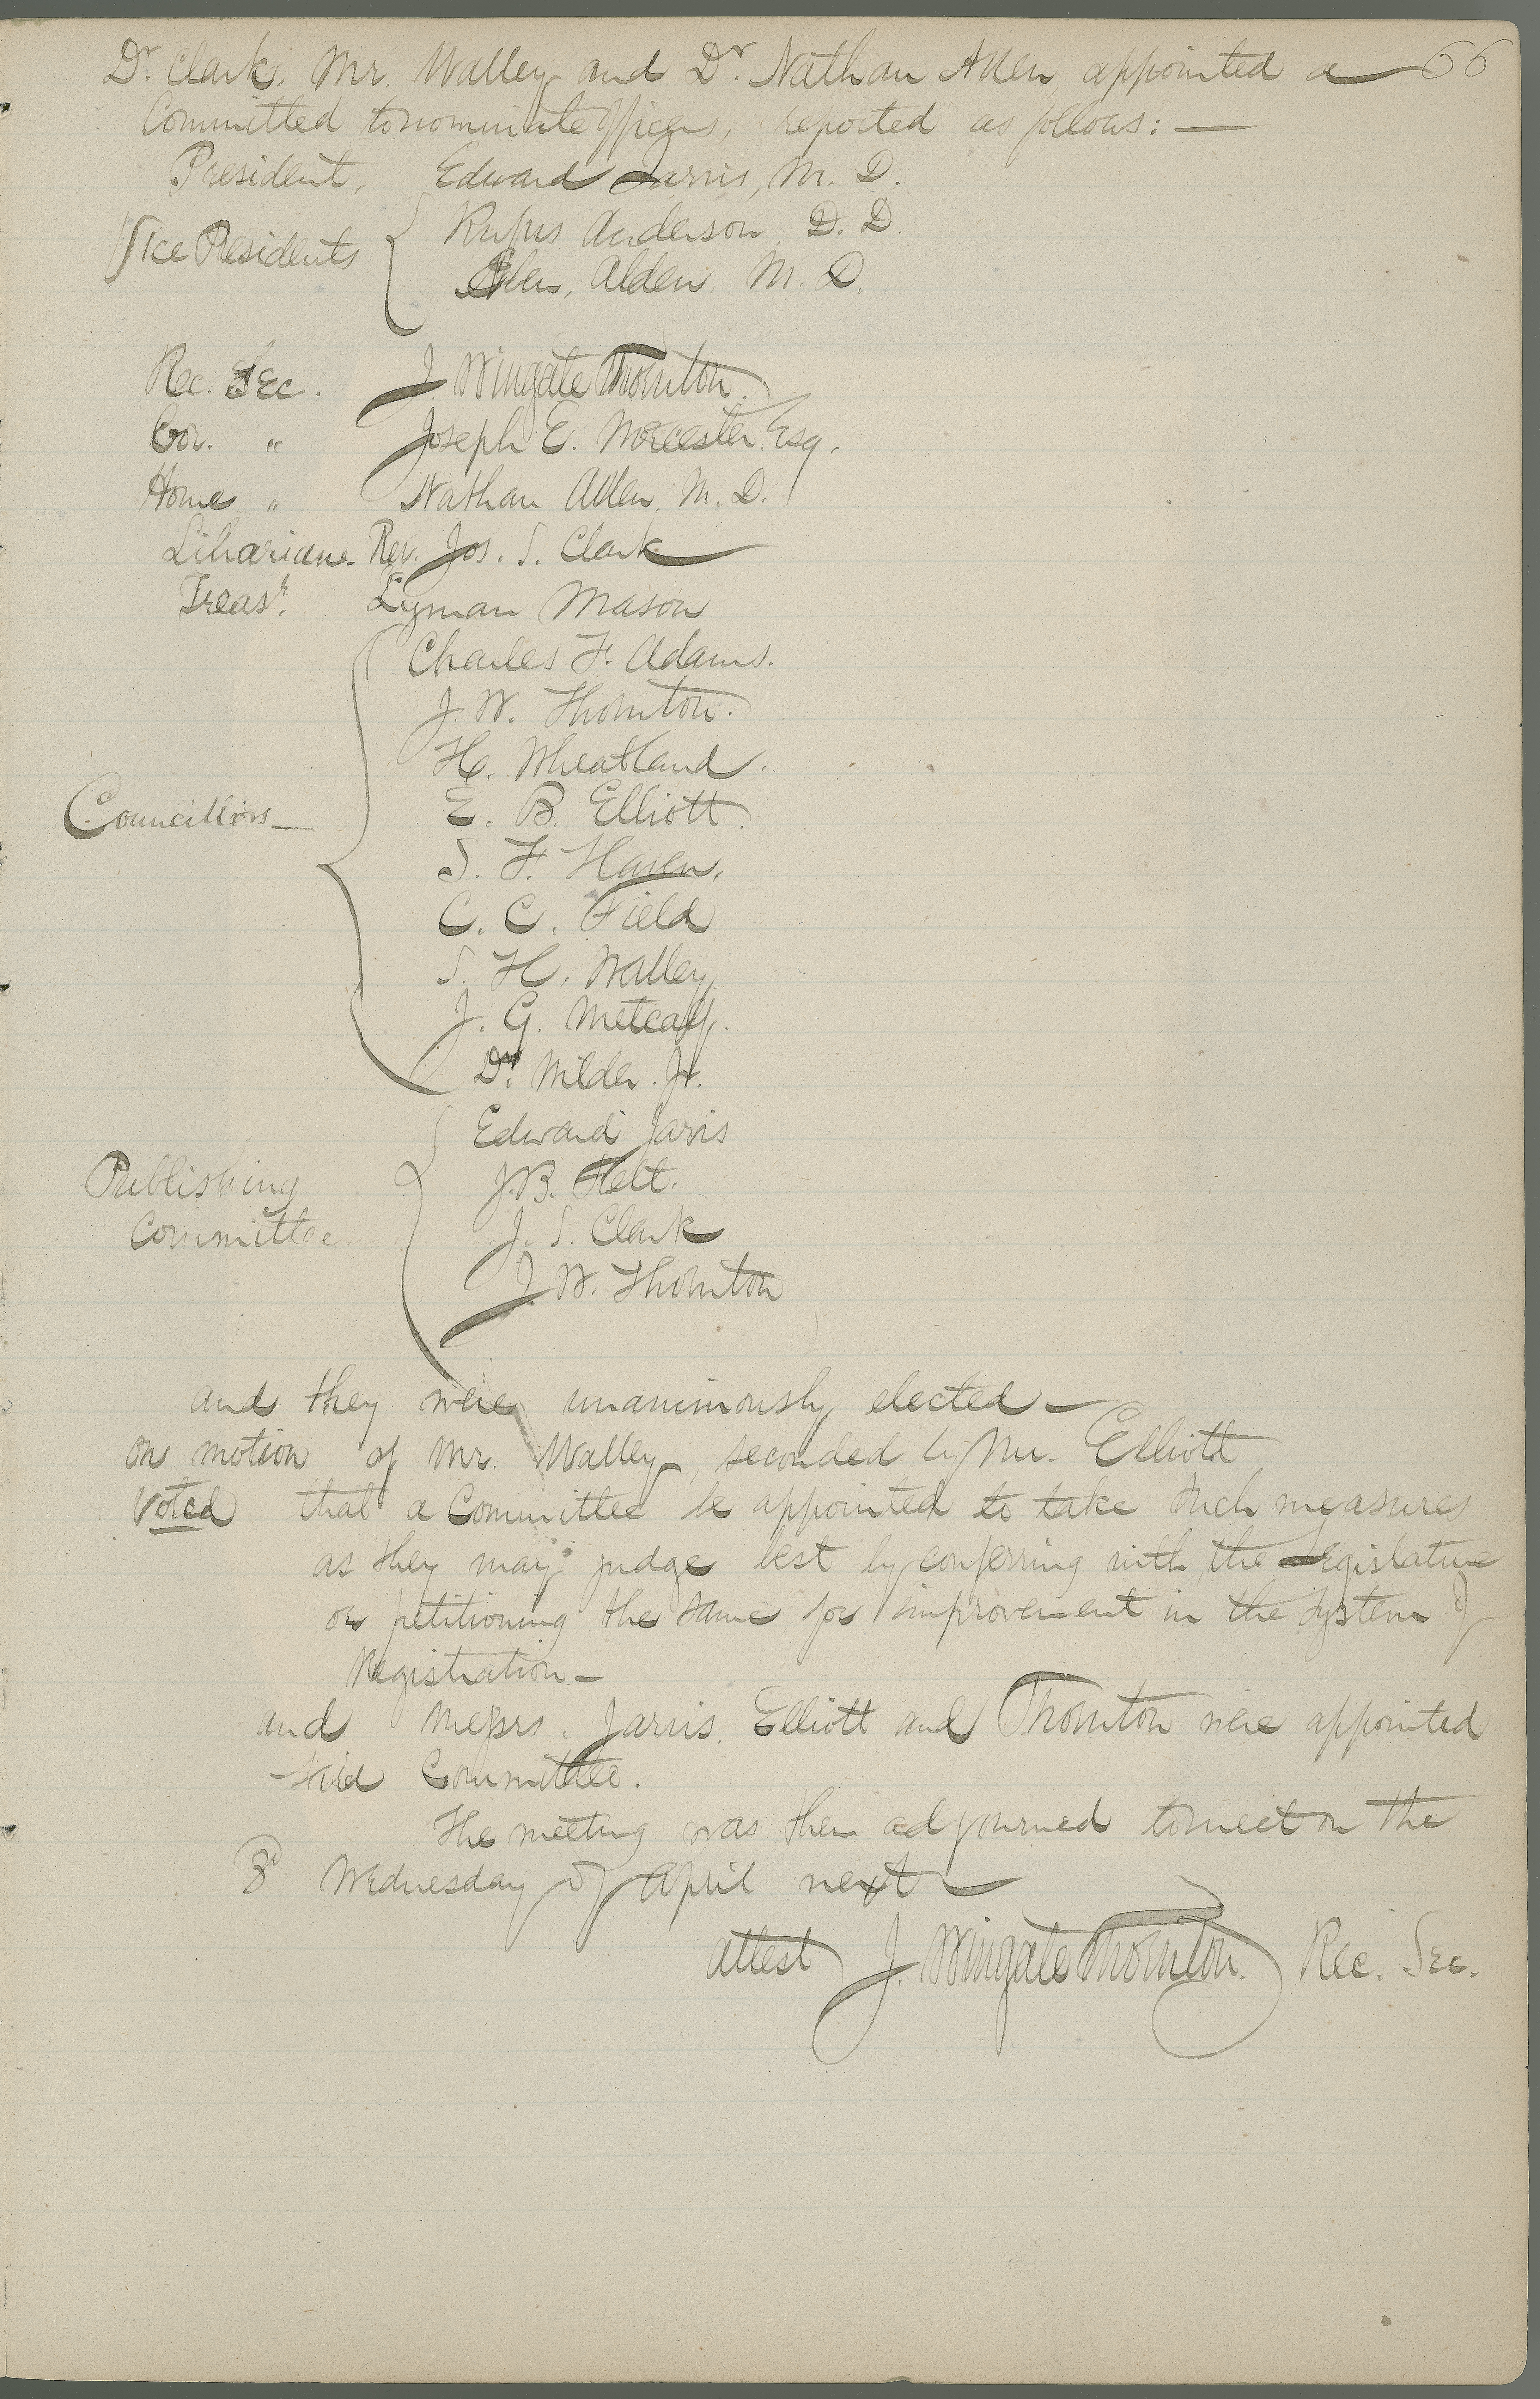 Dr. Clark, Mr. Walley and Dr. Nathan Allen, appointed a 66
Committed to nominate officers, reported as follows: —
President, Edward Jarvis, M. D.
Vice Presidents Rufus Anderson, D. D.
Eben, Alden, M. D.
Rec. Sec. J. Wingate Thornton.
Cor. " Joseph E. Worcester Esq.
Home " Nathan Allen, M. D.
Librarian. Rev. Jos. S. Clark
Treasr. Lyman Mason
Charles F. Adams.
J. W. Thornton.
H. Wheatland.
Councillors — E. B. Elliott.
S. F. Haven,
C. C. Field
S. H. Walley,
J. G. Metcalf.
Dr. Wilder. Jr.
Edward Jarvis
Publishing J. B. Felt.
Committee J. S. Clark
J. W. Thornton
and they were unanimously elected —
On motion of Mr. Walley, seconded by Mr. Elliott
Voted that a Committee be appointed to take such measures
as they may judge best by conferring with the Legislature
or petitioning the same for improvement in the system of
Registration —
and Messrs. Jarvis, Elliott and Thornton were appointed
said Committee.
The meeting was then adjourned to meet on the
3d Wednesday of April next —
attest J. Wingate Thornton. Rec. Sec.